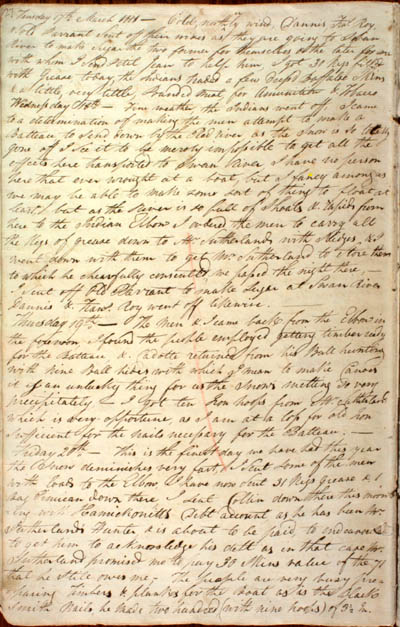 Tuesday 17th March 1801 — Cold, northerly wind. Dannis, Frs. Roy
& Old Parrant sent off their wives as they are going to Swan
River to make Sugar the two former for themselves & the later for me
with whom I send Petit Jean to help him. I got 31 Kegs filled
with Grease today, the Indians traded a few Crops Buffaloe Skins
& a little, very little, Pounded meat for Ammunition & Knives
Wednesday 18th — Fine weather, the Indians went off. I came
to a determination of making the men attempt to make a
Batteau to send down by the Red River as the Snow is so totally
gone off I see it to be merely impossible to get all the
effects here transported to Swan River. I have no person
here that ever wrought at a boat, but I fancy among us
we may be able to make some sort of thing to float at
least, but as the River is so full of Shoals & Rapids from
here to the Indian Elbow I ordered the men to carry all
the Kegs of grease down to Mr Sutherlands with Sledges, & I
went down with them to get Mr Sutherland to store them
to which he chearfully consented we passed the night here, —
I sent off Old Parrant to make Sugar at Swan River
Dannis & Frans. Roy went off likewise. —
Thursday 19th — The men & I came back from the Elbow in
the forenoon & found the people employed getting timber ready
for the Batteau & Cadotte returned from his Bull hunting
with nine Bull hides with which I mean to make Canoes
it is an unlucky thing for us the Snows melting so very
precipitately — I got ten Iron hoops from Mr Sutherland
which is very opportune, as I am at a loss for old iron
sufficient for the nails necessary for the Batteau —
Friday 20th — This is the finest day we have had this year
the Snow deminishes very fast, I sent some of the men
with loads to the Elbow I have now sent 31 Kegs Grease & 1
bag Pemican down there. I sent Collin down there this morning
with Hamichonitts Debt account as he has been Mr
Sutherlands Hunter & is about to be paid, to endeavour
to get him to acknowledge his debt as in that case Mr
Sutherland promised me to pay 30 Skins value of the 71
that he still owes me — The people are very busy pre-
paring timbers & planks for the Boat as is the Black-
smith Nails he made two hundred (with nine hoops) of 3½ In.